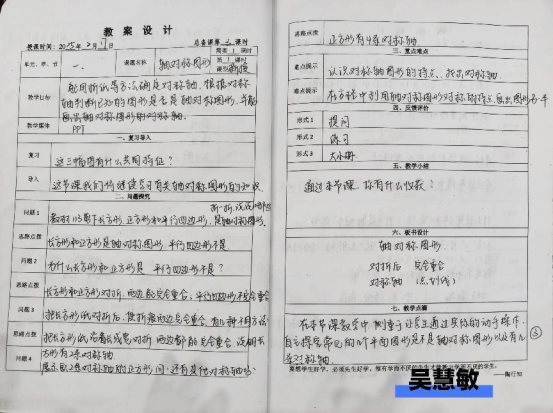 教案设计
授课时间：2025年2月17日 总备课第二课时
单元、章、节 一. 课题名称 轴对称图形
需要 1 课时
第 1 课时
课型 新授
教学目标 能用折纸等方法确定对称轴，根据对称
轴判断已知的图形是否是轴对称图形，并能
画出轴对称图形的对称轴.
教学媒体 PPT
一、复习导入
复习 这三幅图有什么共同特征？
导入 这节课我们将继续学习有关轴对称图形的知识
二、问题探究
问题1 折一折，说说哪些
是轴对称图形.
思路点拨 长方形和正方形是轴对称图形，平行四边形不是
问题2 为什么长方形和正方形是，平行四边形不是？
思路点拨 长方形和正方形对折，两边能完全重合，平行四边形不完全重合
问题3 把长方形纸对折后，使折痕两边完全重合，有几种不同方法
思路点拨 把长方形纸沿着长或宽对折，两边都能完全重合，说明长
方形有2条对称轴
问题4
思路点拨 正方形有4条对称轴
三、重点难点
重点提示 认识对称轴图形的特点，找出对称轴.
难点提示 在方格中利用轴对称图形对称轴的特点，画出图形另一半
四、反馈评价
形式1 提问
形式2 练习
形式3 大小册
五、教学小结
通过本节课，你有什么收获？
六、板书设计
轴对称图形
对折后 完全重合
对称轴 （点划线）
七、教学点滴
在本节课教学中，侧重于让学生通过实际的动手操作，
自主探究常见的几个平面图形是不是轴对称图形以及有几
条对称轴.
要想学生好学，必须先生好学。惟有学而不厌的先生才能教出学而不厌的学生。
——陶行知
吴慧敏